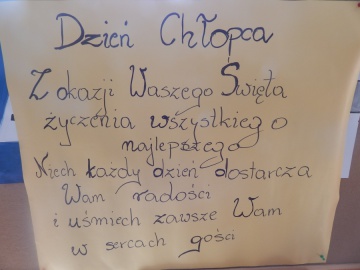 Dzień Chłopca
Z okazji Waszego Święta
życzenia wszystkiego
najlepszego
Niech każdy dzień dostarcza
Wam radości
i uśmiech zawsze Wam
w sercach gości